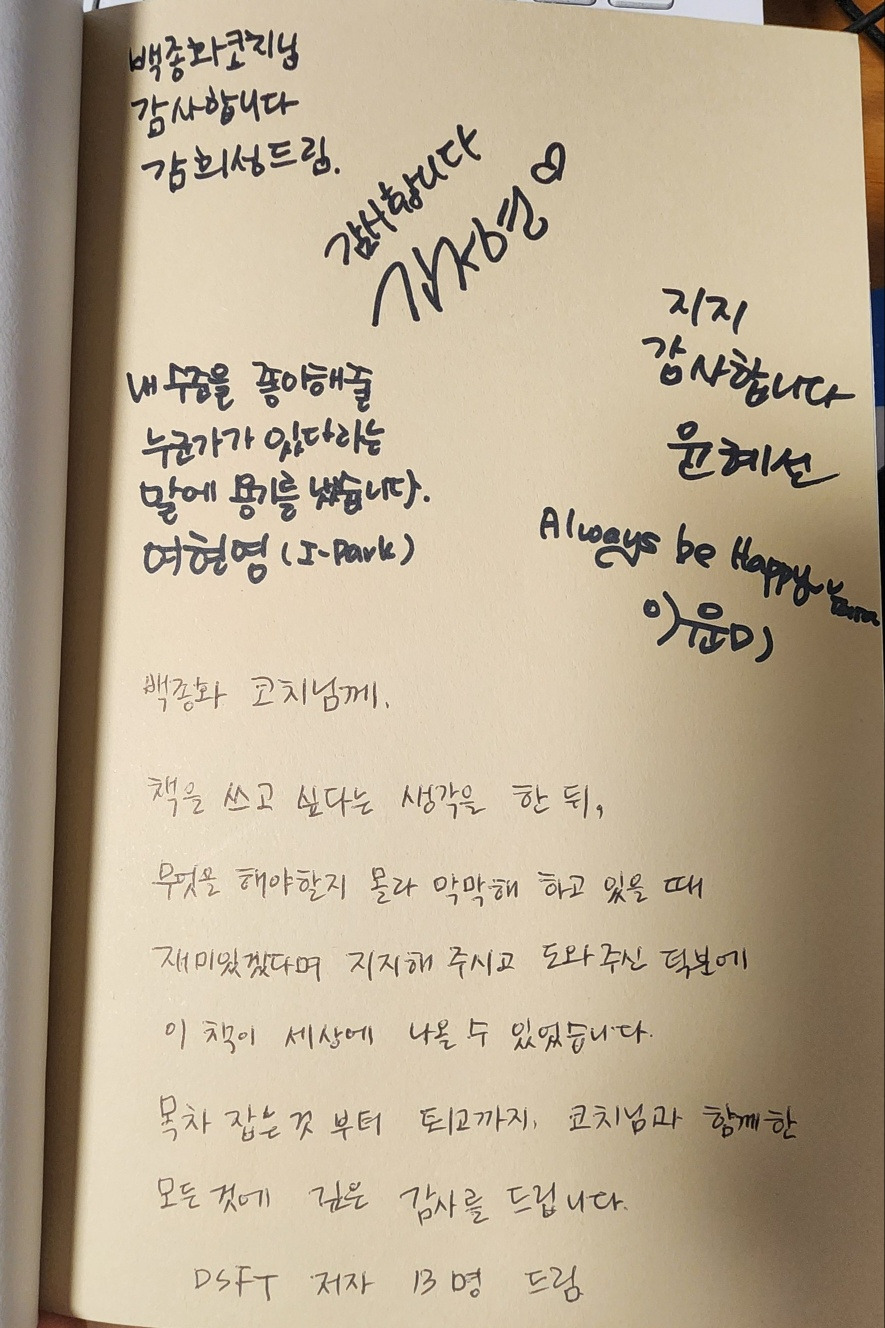 백종화코치님
감사합니다
김희성드림.
감사합니다
지지
감사합니다
윤혜선
내 수중을 좋아해줄
누군가가 있다라는
말에 용기를 냈습니다.
여현영 (I-Park)
Always be Happy
이윤미
백종화 코치님께.
책을 쓰고 싶다는 생각을 한 뒤,
무엇을 해야할지 몰라 막막해 하고 있을 때
재미있겠다며 지지해 주시고 도와주신 덕분에
이 책이 세상에 나올 수 있었습니다.
목차 잡는것 부터 퇴고까지, 코치님과 함께한
모든 것에 깊은 감사를 드립니다.
DSFT 저자 13명 드림